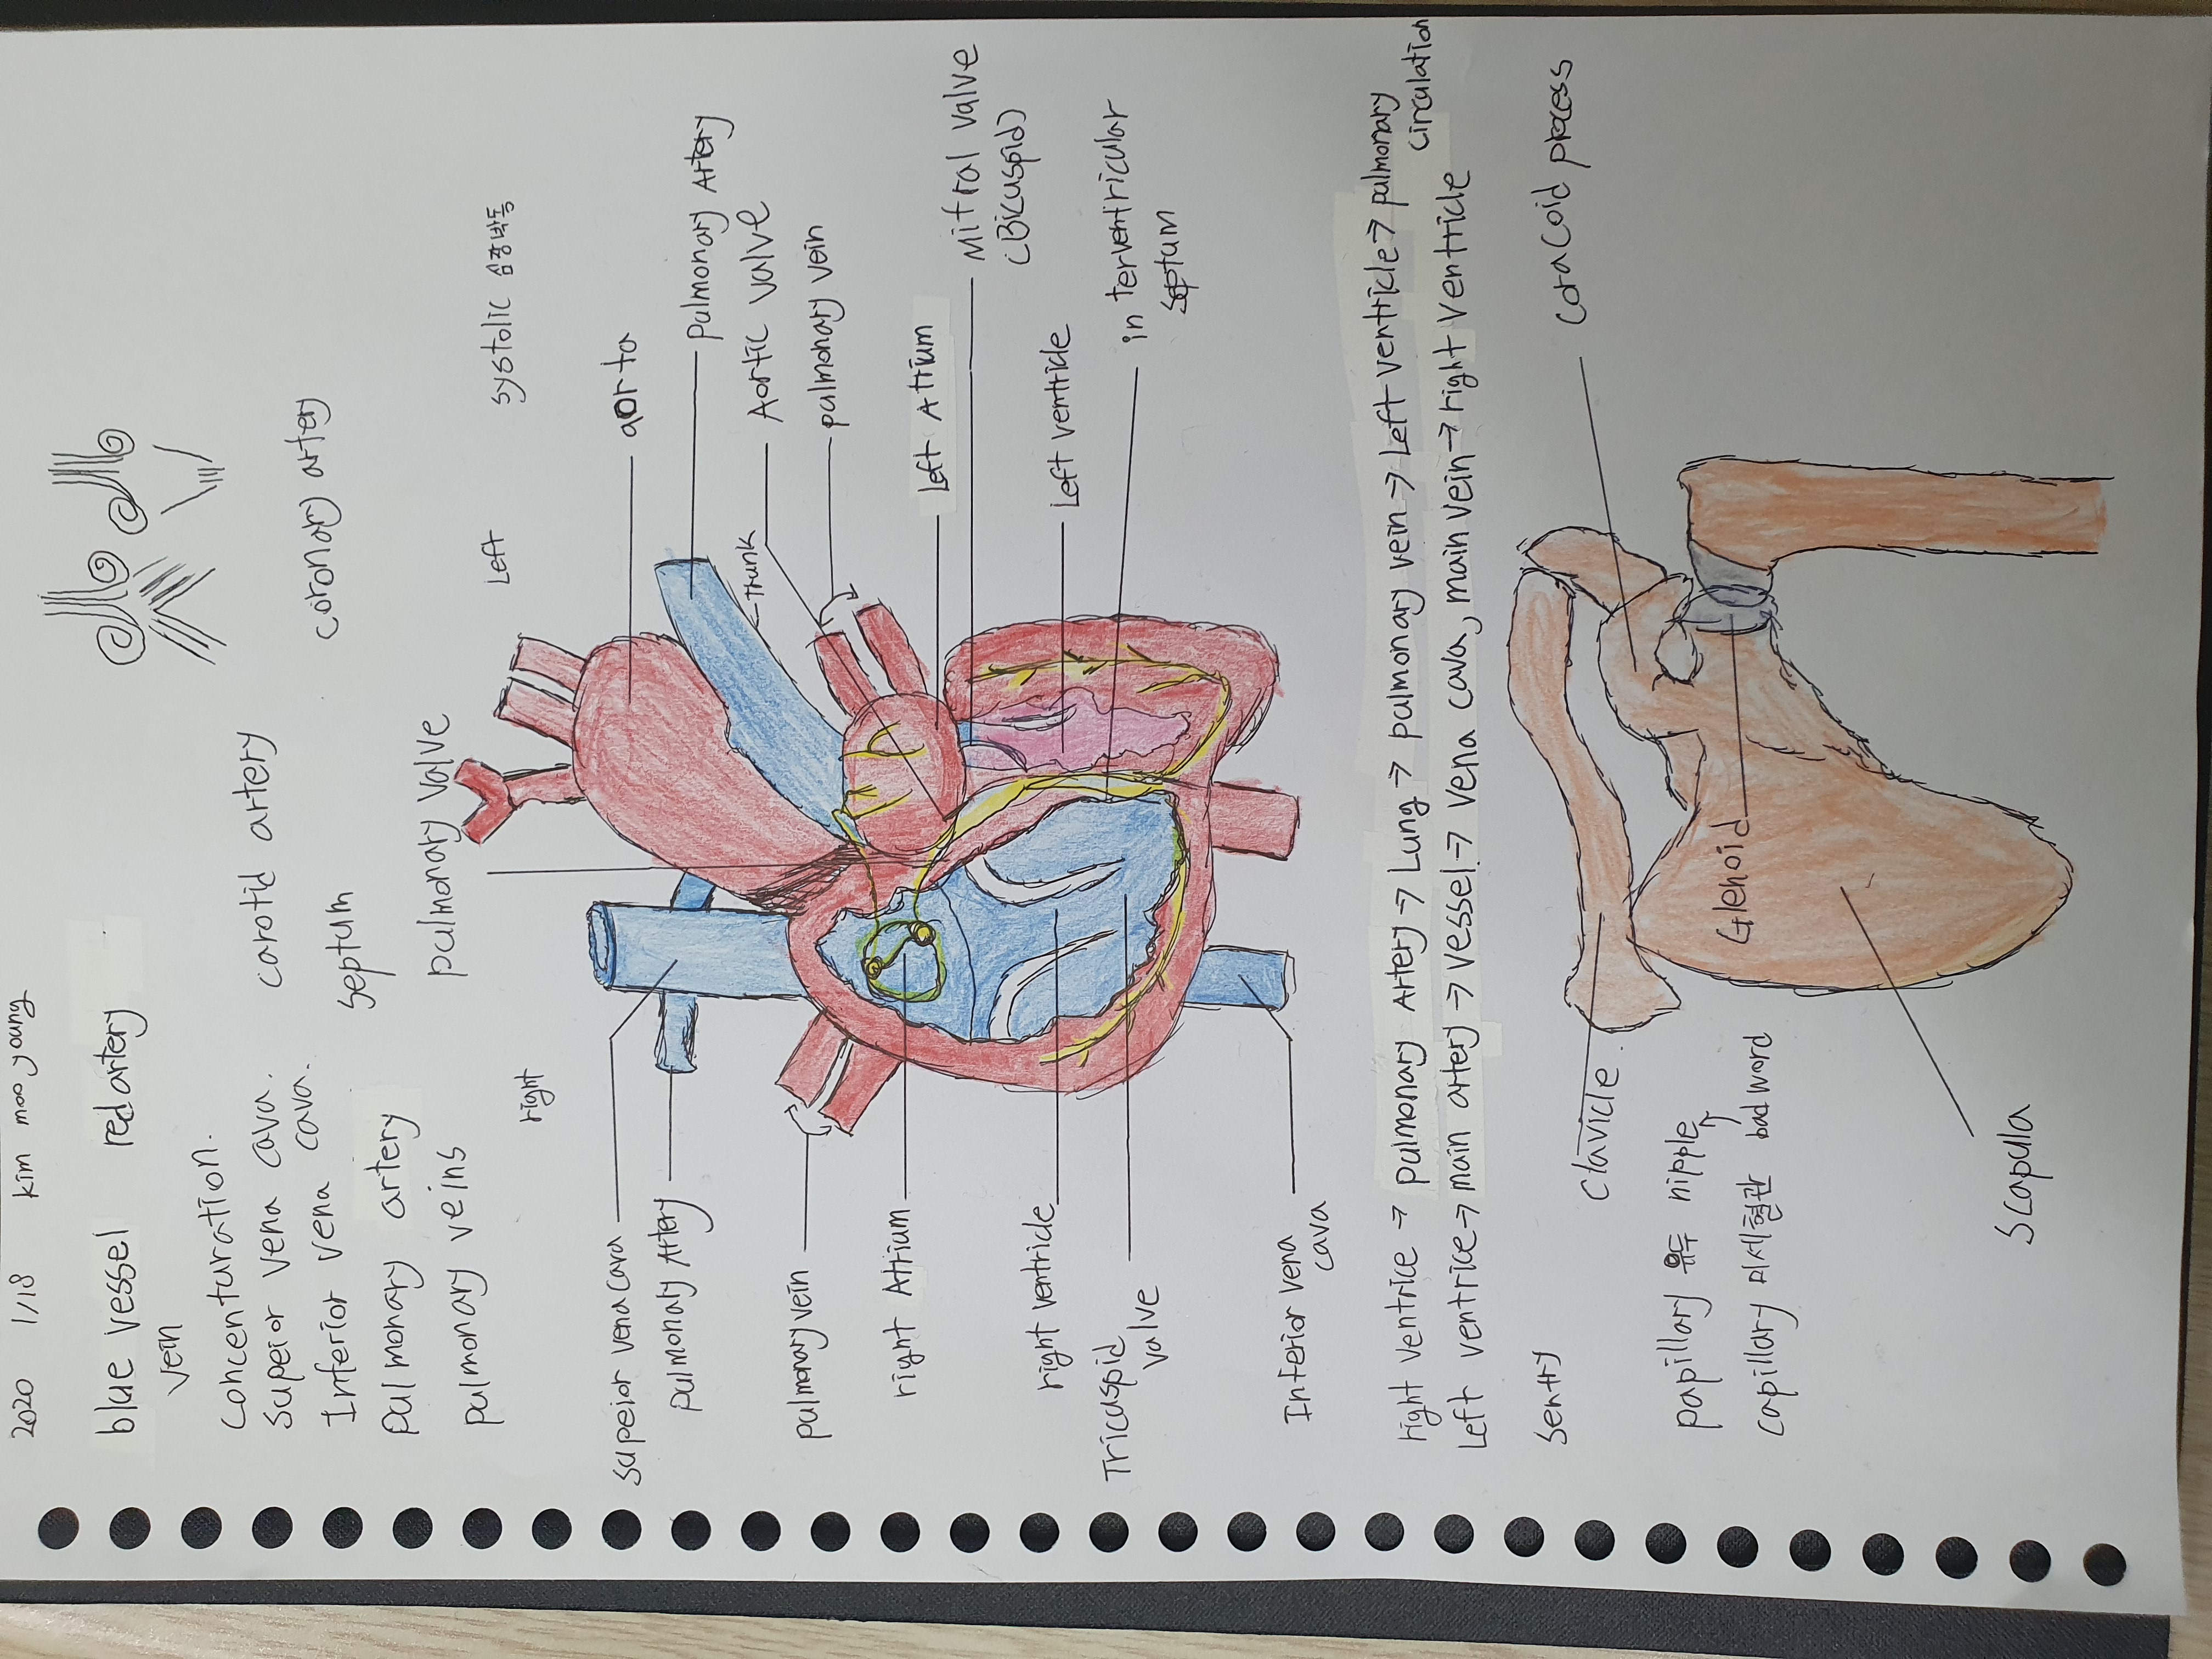 2020 1/18 kim moo young
blue vessel red artery
vein
concenturation.
supeior vena cava. carotid artery
Inferior vena cava. septum coronary artery
pulmonary artery
pulmonary veins pulmonary valve
right Left systolic 심장박동
aorta
pulmonary Artery
Trunk
Aortic valve
pulmonary vein
Left Atrium
Mitral valve
(Bicuspid)
Left ventricle
interventricular
septum
supeior vena cava
pulmonary Artery
pulmonary vein
right Atrium
right ventricle
Tricuspid
valve
Inferior vena
cava
right ventrice → pulmonary Artery → Lung → pulmonary vein → Left ventricle → pulmonary
circulation
Left ventrice → main artery → vessel → vena cava, main vein → right ventricle
sentry
clavicle.
coracoid process
Glenoid
papillary 유두 nipple
capillary 미세혈관 bad word
scapula